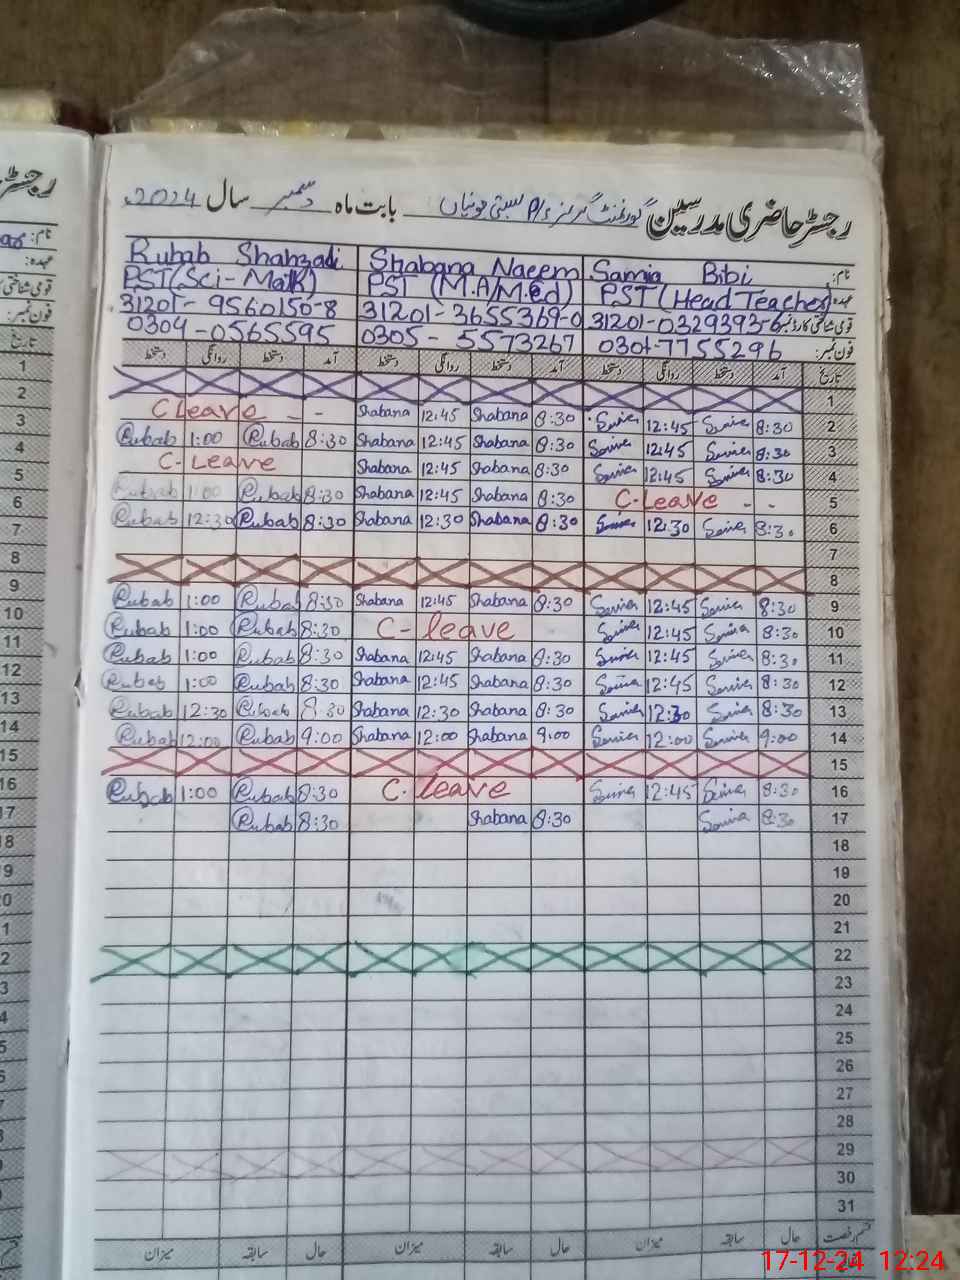 رجسٹر حاضری مدرسین گورنمنٹ گرلز P/S بستی جونیاں بابت ماہ دسمبر سال 2024
نام: Samia Bibi Shabana Naeem Rubab Shahzadi
عہدہ: PST (Head Teacher) PST (M.A/M.ed) PST (Sci-Math)
قومی شناختی کارڈ نمبر: 31201-0329393-6 31201-3655369-0 31201-9560150-8
فون نمبر: 0301-7755296 0305-5573267 0304-0565595
تاریخ آمد دستخط روانگی دستخط آمد دستخط روانگی دستخط آمد دستخط روانگی دستخط
1
C Leave - - Shabana 12:45 Shabana 8:30 Samia 12:45 Samia 8:30 2
Rubab 1:00 Rubab 8:30 Shabana 12:45 Shabana 8:30 Samia 12:45 Samia 8:30 3
C-Leave Shabana 12:45 Shabana 8:30 Samia 12:45 Samia 8:30 4
Rubab 1:00 Rubab 8:30 Shabana 12:45 Shabana 8:30 C-Leave - - 5
Rubab 12:30 Rubab 8:30 Shabana 12:30 Shabana 8:30 Samia 12:30 Samia 8:30 6
7
8
Rubab 1:00 Rubab 8:30 Shabana 12:45 Shabana 8:30 Samia 12:45 Samia 8:30 9
Rubab 1:00 Rubab 8:30 C-leave Samia 12:45 Samia 8:30 10
Rubab 1:00 Rubab 8:30 Shabana 12:45 Shabana 8:30 Samia 12:45 Samia 8:30 11
Rubab 1:00 Rubab 8:30 Shabana 12:45 Shabana 8:30 Samia 12:45 Samia 8:30 12
Rubab 12:30 Rubab 8:30 Shabana 12:30 Shabana 8:30 Samia 12:30 Samia 8:30 13
Rubab 12:00 Rubab 9:00 Shabana 12:00 Shabana 9:00 Samia 12:00 Samia 9:00 14
15
Rubab 1:00 Rubab 8:30 C-leave Samia 12:45 Samia 8:30 16
Rubab 8:30 Shabana 8:30 Samia 8:30 17
18
19
20
21
22
23
24
25
26
27
28
29
30
31
قسم رخصت حال سابقہ میزان حال سابقہ میزان حال سابقہ میزان
17-12-24 12:24